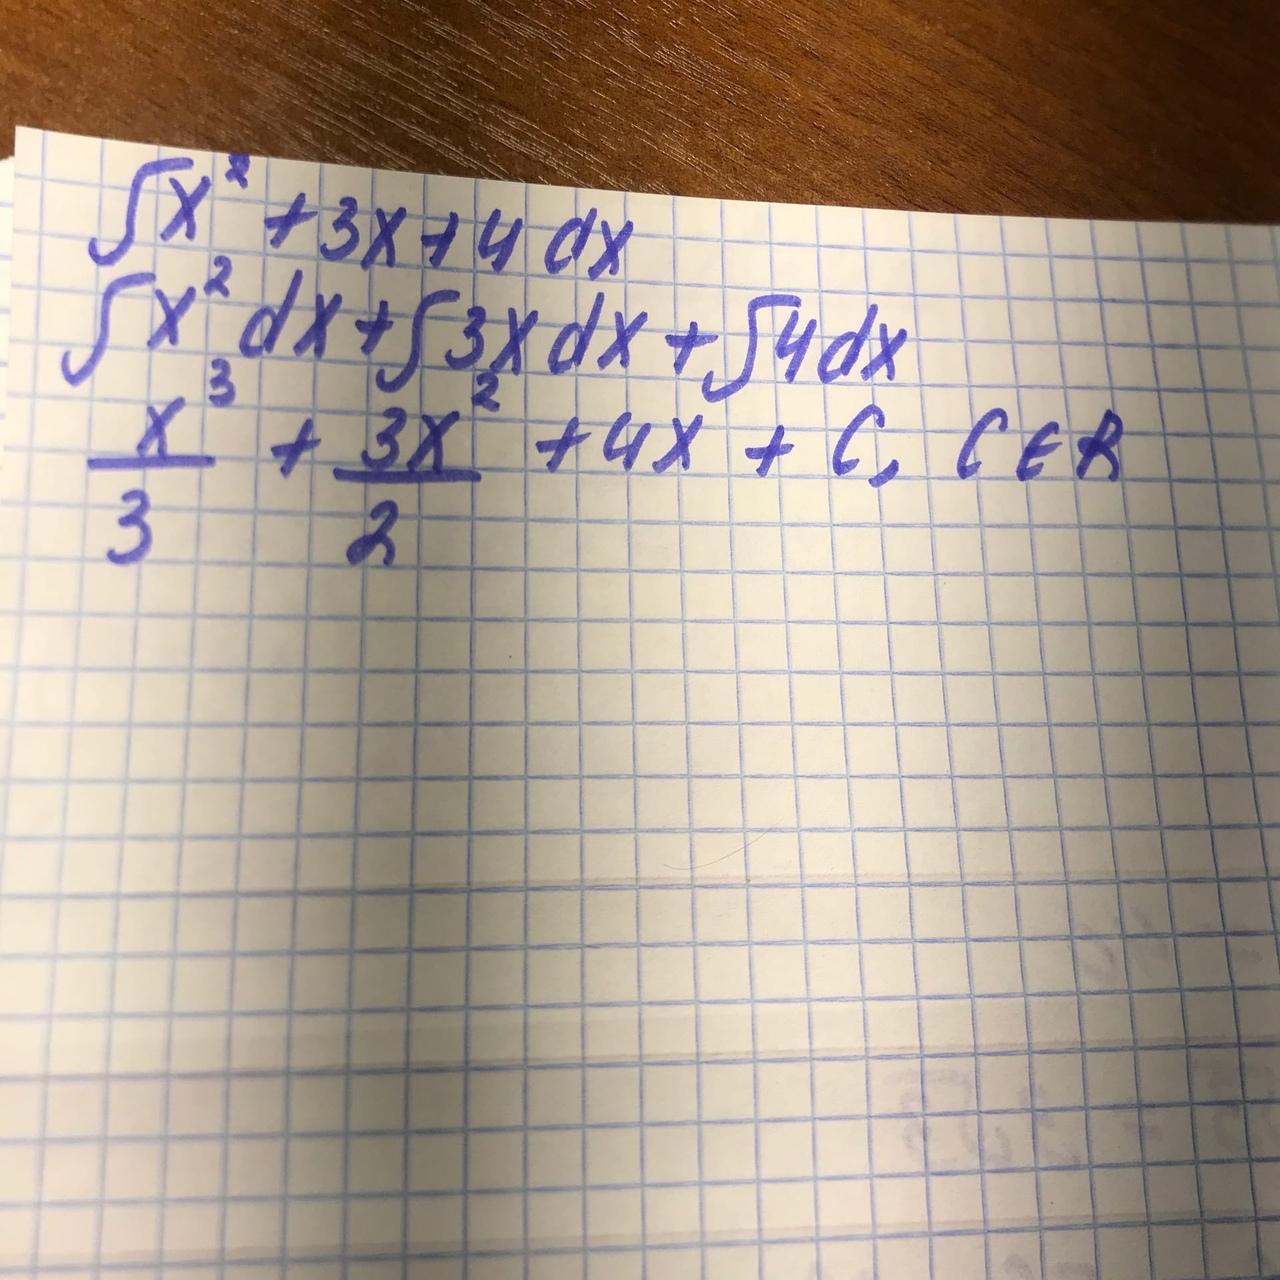 ∫x² + 3x + 4 dx
∫x² dx + ∫3x dx + ∫4 dx
x³/3 + 3x²/2 + 4x + C, C ∈ R